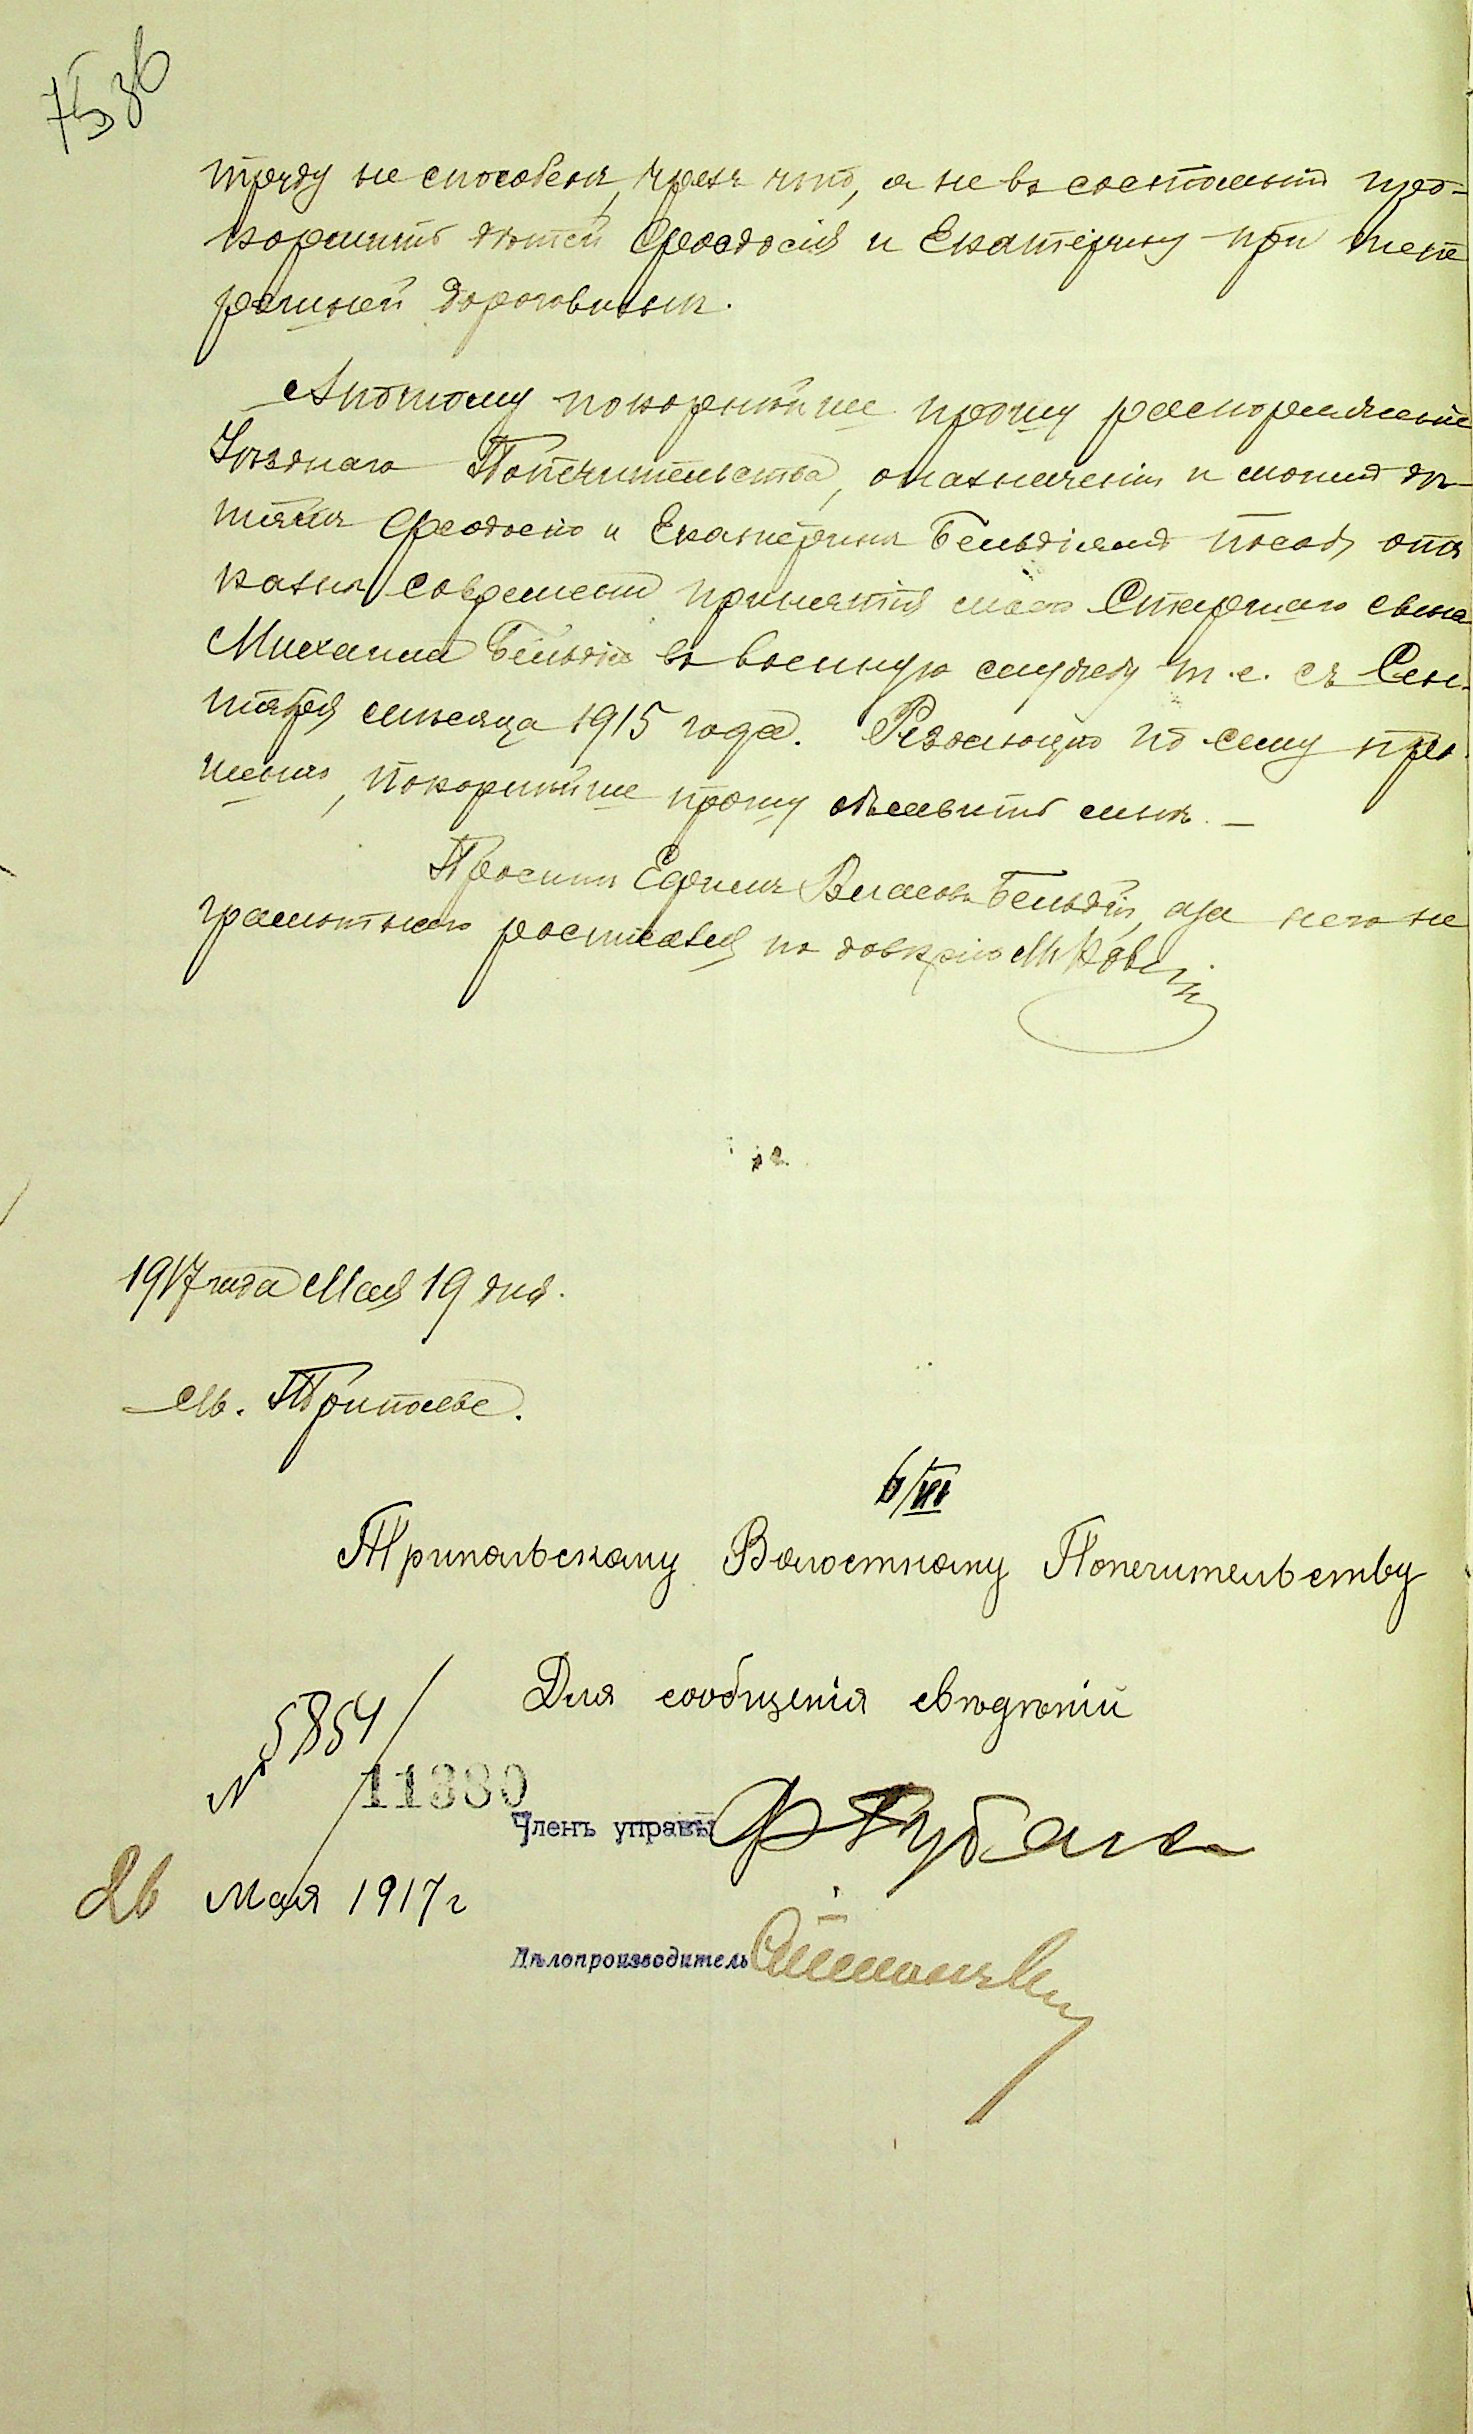 труду не способенъ, чрезъ что, я не въ состоянiи про-
кормить дѣтей Феодосiя и Екатерину при тепе
решней дороговизнѣ.
А потому покорнѣйше прошу распоряженiе
Уѣзднаго Попечительства, о назначенiи и моимъ дѣ-
тямъ Феодосiю и Екатеринѣ Бельдiямъ пособ
со времени принятiя моего Старшаго сына
Михаила Бельдiя въ военную службу т.е. съ Сен-
тября мѣсяца 1915 года. Резолюцiю по сему про
шенiю, покорнѣйше прошу объявить мнѣ. —
Проситъ Ефимъ Власовъ Бельдiй, а за него не
грамотнаго росписался по довѣрiю
1917 года Мая 19 дня.
м. Триполье.
6/VI
Трипольскому Волостному Попечительству
Для сообщенiя свѣдѣнiй
№ 5854/
11380
Членъ управы
26 Мая 1917 г
Дѣлопроизводитель